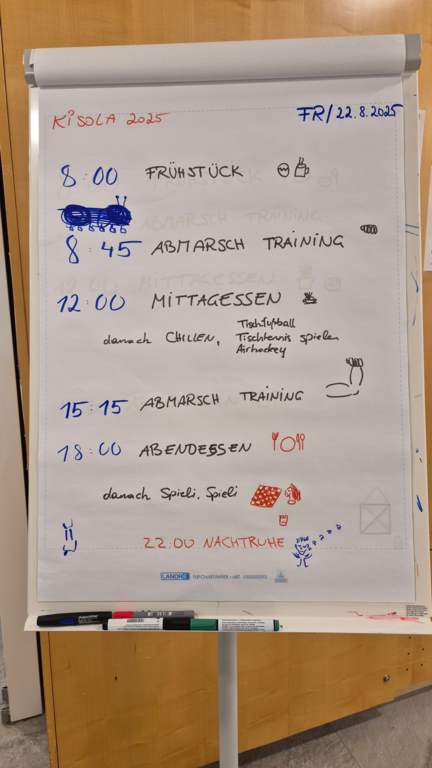 KiSOLA 2025
FR/22.8.2025
8:00 FRÜHSTÜCK
8:45 ABMARSCH TRAINING
12:00 MITTAGESSEN
danach CHILLEN, Tischfußball
Tischtennis spielen
Airhockey
15:15 ABMARSCH TRAINING
18:00 ABENDESSEN
danach Spieli, Spieli
22:00 NACHTRUHE
LANDRÉ FLIPCHARTPAPIER - ART.